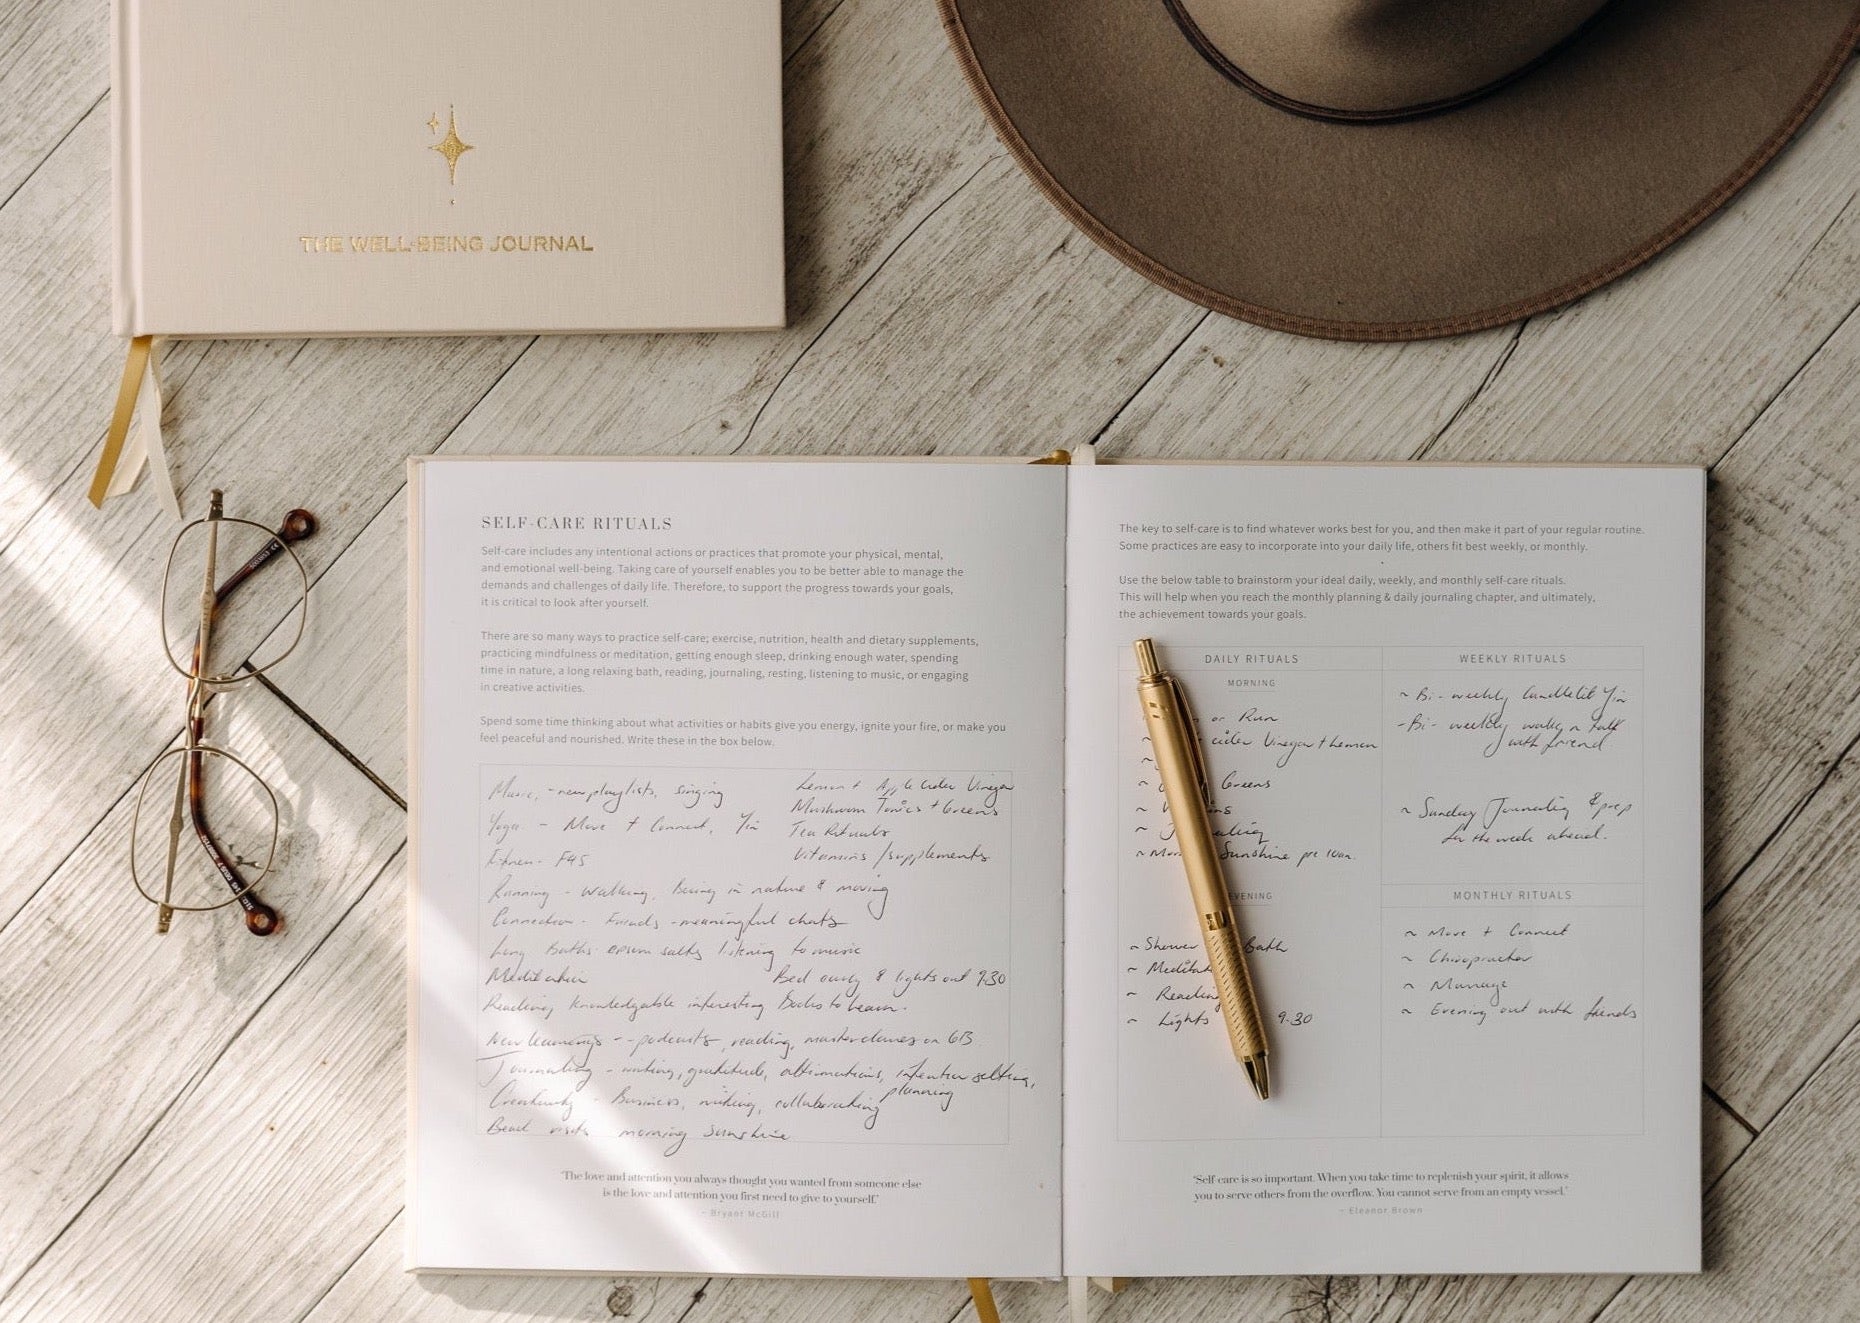 THE WELL-BEING JOURNAL
SELF-CARE RITUALS
Self-care includes any intentional actions or practices that promote your physical, mental,
and emotional well-being. Taking care of yourself enables you to be better able to manage the
demands and challenges of daily life. Therefore, to support the progress towards your goals,
it is critical to look after yourself.
There are so many ways to practice self-care; exercise, nutrition, health and dietary supplements,
practicing mindfulness or meditation, getting enough sleep, drinking enough water, spending
time in nature, a long relaxing bath, reading, journaling, resting, listening to music, or engaging
in creative activities.
Spend some time thinking about what activities or habits give you energy, ignite your fire, or make you
feel peaceful and nourished. Write these in the box below.
Music, - new playlists, singing
Yoga - Move + Connect, Yin
Fitness - F45
Running - walking, Being in nature & moving
Connection - Friends - meaningful chats
Long Baths epsom salts listening to music
Meditation
Reading knowledgable interesting Books to learn.
New learnings - podcasts, reading, masterclasses on GB
Journaling - writing, gratitude, affirmations, intention setting,
planning
Creativity - Business, writing, collaborating
Beach visits morning Sunshine
Lemon + Apple Cider Vinegar
Mushroom Tonics + Greens
Tea Rituals
Vitamins / supplements
Bed early & lights out 9.30
"The love and attention you always thought you wanted from someone else
is the love and attention you first need to give to yourself."
~ Bryant McGill
The key to self-care is to find whatever works best for you, and then make it part of your regular routine.
Some practices are easy to incorporate into your daily life, others fit best weekly, or monthly.
Use the below table to brainstorm your ideal daily, weekly, and monthly self-care rituals.
This will help when you reach the monthly planning & daily journaling chapter, and ultimately,
the achievement towards your goals.
DAILY RITUALS
MORNING
or Run
cider Vinegar + Lemon
Greens
~ Sunshine pre 10am.
EVENING
~ Shower Bath
~ Meditat
~ Reading
~ Lights 9.30
WEEKLY RITUALS
~ Bi - weekly Candlelit Yin
- Bi - weekly walk n talk
with friend
~ Sunday Journaling & prep
for the week ahead.
MONTHLY RITUALS
~ Move + Connect
~ Chiropractor
~ Massage
~ Evening out with friends
"Self care is so important. When you take time to replenish your spirit, it allows
you to serve others from the overflow. You cannot serve from an empty vessel."
~ Eleanor Brown